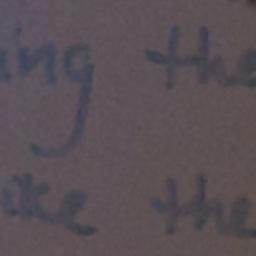 ing the
ike the